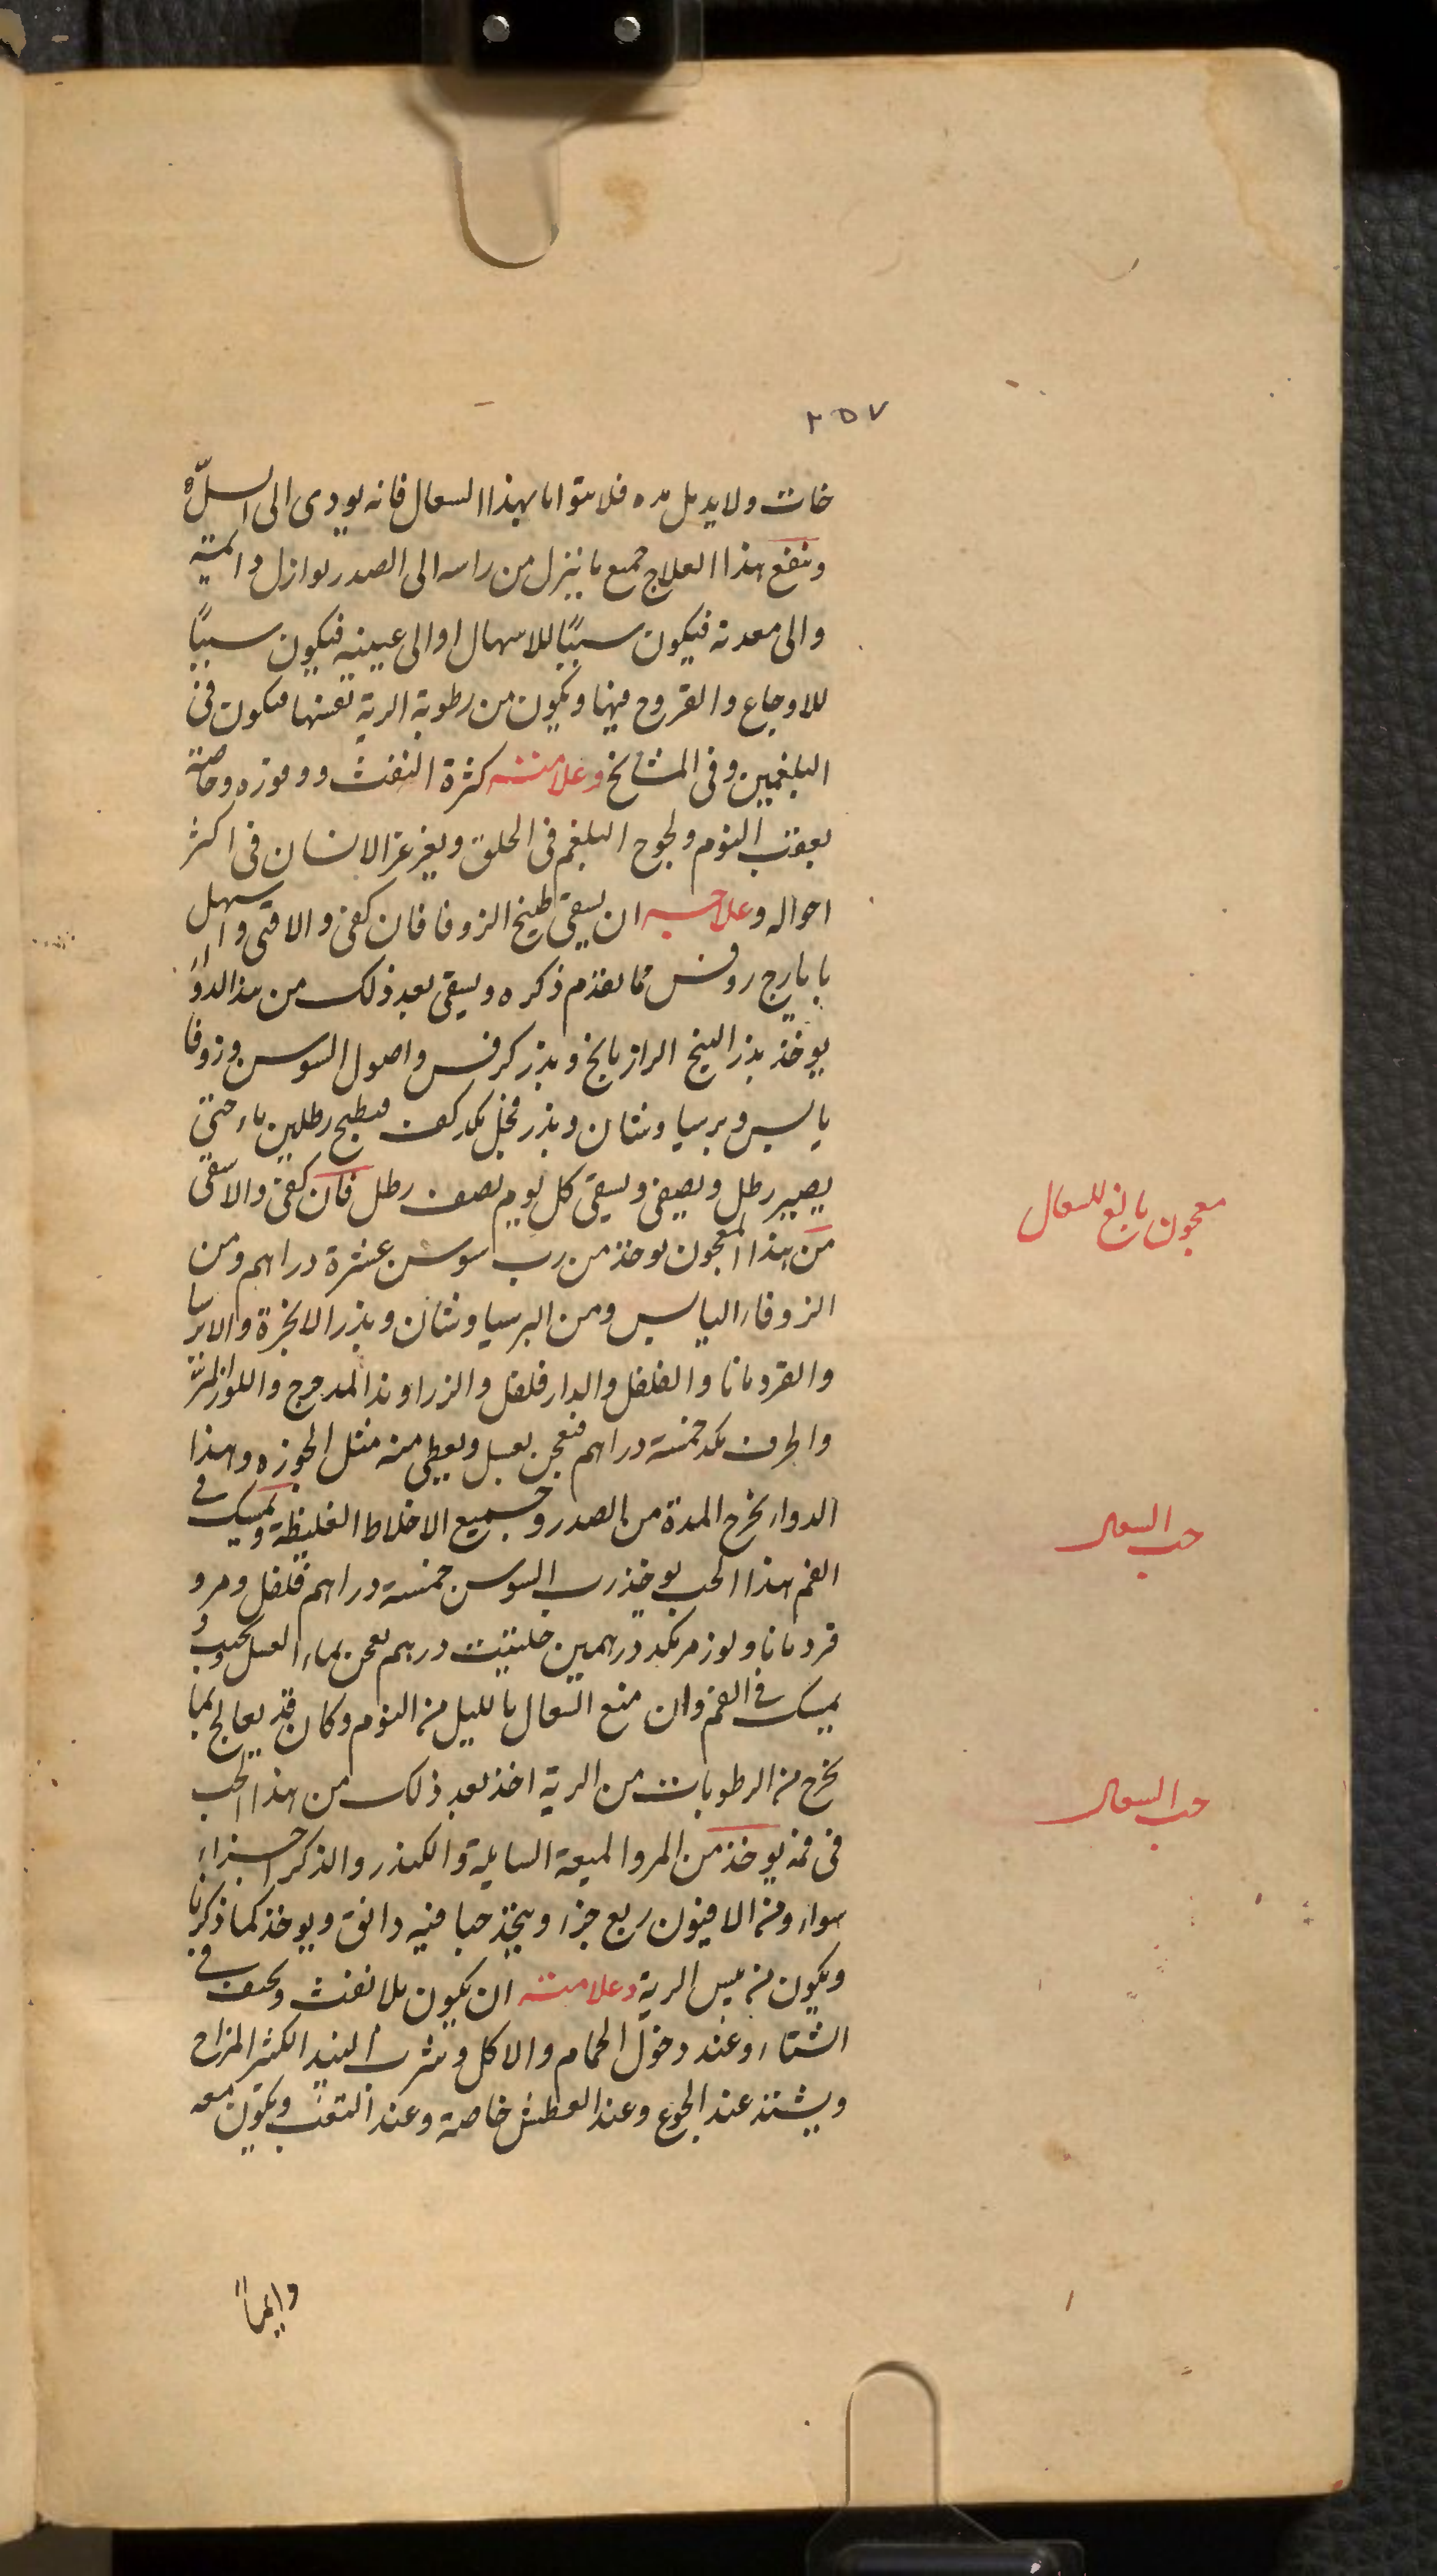 ٢٥٧
خات ولا يدمل مده فلا يتوانا بهذا السعال فانه يودى الى السلّ ه
وينفع هذا العلاج جميع ما ينزل من راسه الى الصدر نوازل دائمية
والى معدته فيكون سببًا للاسهال او الى عينيه فيكون سببًا
للاوجاع والقروح فيها ويكون من رطوبة الرية نفسها فيكون فى
البلغميين وفى المشايخ وعلامته كثرة النفث ووفوره وخاصة
بعقب النوم ولجوج البلغم فى الحلق ويغرغر الانسان فى اكثر
احواله وعلاجه ان يسقى طبيخ الزوفا فان كفى والا قى واسهل
بايارج روفس مما تقدم ذكره ويسقى بعد ذلك من هذا الدواء
يوخذ بذر البنج الرازيانج وبذر كرفس واصول السوسن وزوفا
يابس وبرسياوشان وبذر فجل مكد كف فيطبخ رطلين ماء حتى
يصير رطل ويصفى ويسقى كل يوم نصف رطل فان كفى والا سقى
من هذا المعجون يوخذ من رب سوس عشرة دراهم ومن
الزوفاء اليابس ومن البرسياوشان وبذر الانجرة والايرسا
والقردمانا والفلفل والدارفلفل والزراوند المدحرج واللوز المرّ
والحرف مكد خمسة دراهم فتعجن بعسل ويعطى منه مثل الجوزه وهذا
الدواء يخرج المدة من الصدر وجميع الاخلاط الغليظة ويمسك فى
الفم هذا الحب يوخذ رب السوس خمسة دراهم فلفل ومر و
قردمانا ولوز مر مكد درهمين حلتيت درهم يعجن بماء العسل يحبب و
يمسك فى الفم وان منع السعال بالليل من النوم وكان قد يعالج بما
يخرج من الرطوبات من الرية اخذ بعد ذلك من هذا الحب
فى فمه يوخذ من المر والميعة السايلة والكندر والذكر اجزاء
سواء ومن الافيون ربع جزء ويتخذ حبا فيه دانق ويوخذ كما ذكرنا
ويكون من يبس الرية وعلامته ان يكون بلا نفث ويخف فى
الشتاء وعند دخول الحمام والاكل وشرب النبيذ الكثير المزاج
ويشتد عند الجوع وعند العطش خاصة وعند التعب ويكون معه
معجون نافع للسعال
حب السعال
حب السعال
وايما